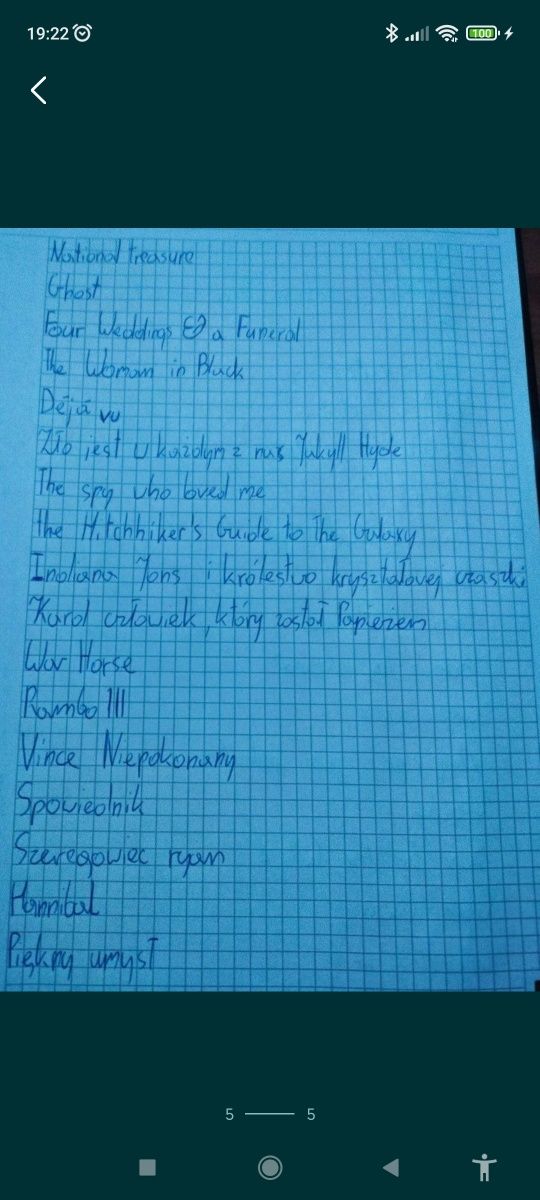 19:22
100
National treasure
Ghost
Four Weddings & a Funeral
The Woman in Black
Déjà vu
Zło jest w każdym z nas Jekyll Hyde
The spy who loved me
The Hitchhiker's Guide to The Galaxy
Indiana Jons i królestwo kryształowej czaszki
Karol człowiek, który został Papieżem
War Horse
Rambo III
Vince Niepokonany
Spowiednik
Szeregowiec ryan
Hannibal
Piękny umysł
5 5